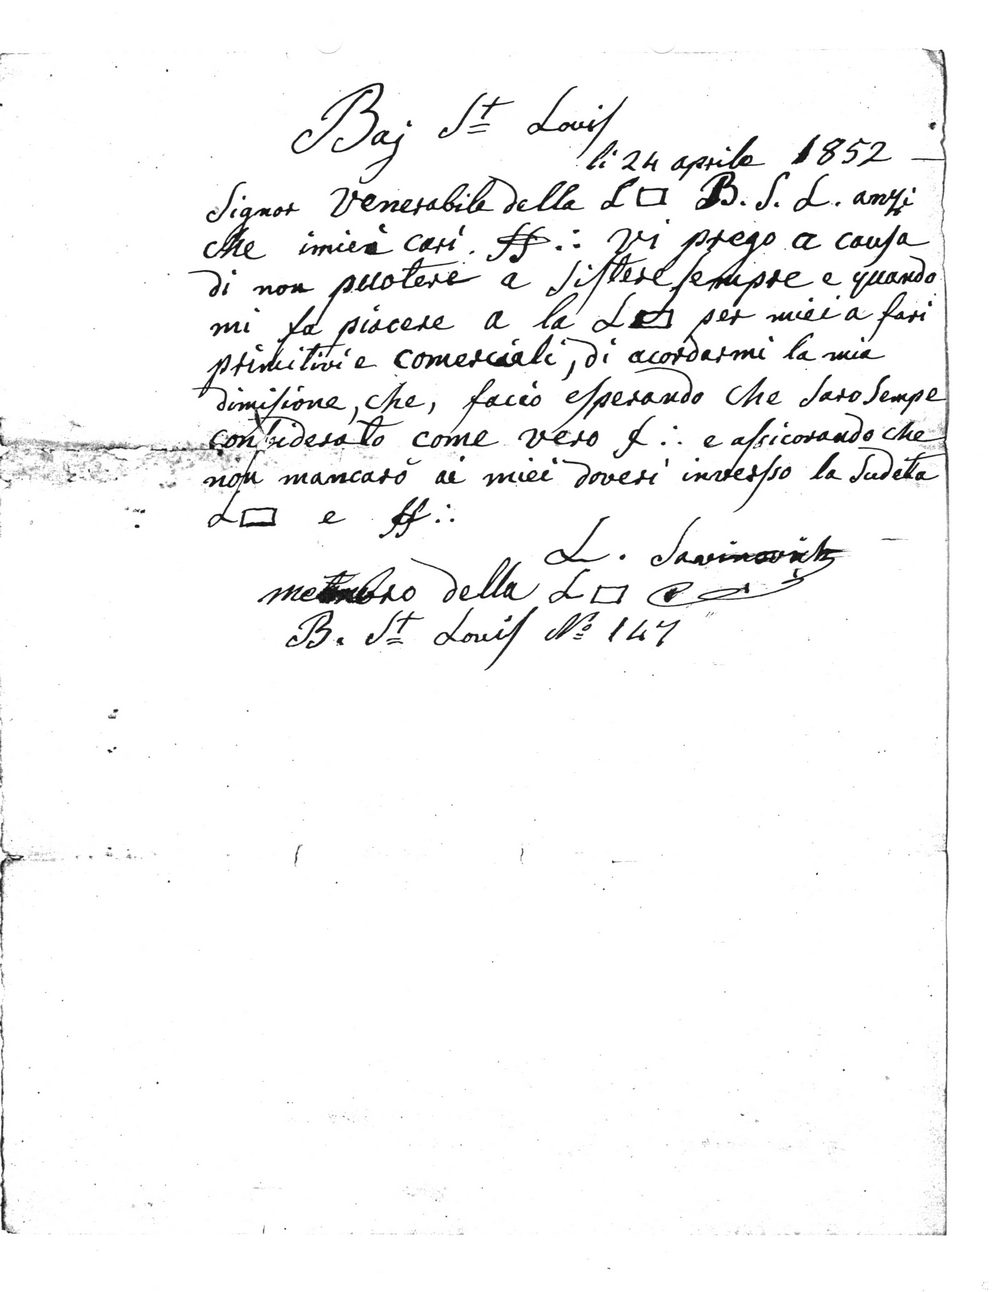 Baj St Louis
li 24 aprile 1852
Signor Venerabile della L□ B. S. L. anzi
che imiei cari ff∴ vi prego a causa
di non puotere a sistere sempre e quando
mi fa piacere a la L□ per miei a fari
primitivi e comerciali, di acordarmi la mia
dimisione, che, faccio esperando che saro sempe
considerato come vero f∴ e assicorando che
non mancarò ai miei doveri inverso la sudeta
L□ e ff∴
L. Savinovich
membro della L□
B. St Louis No 147